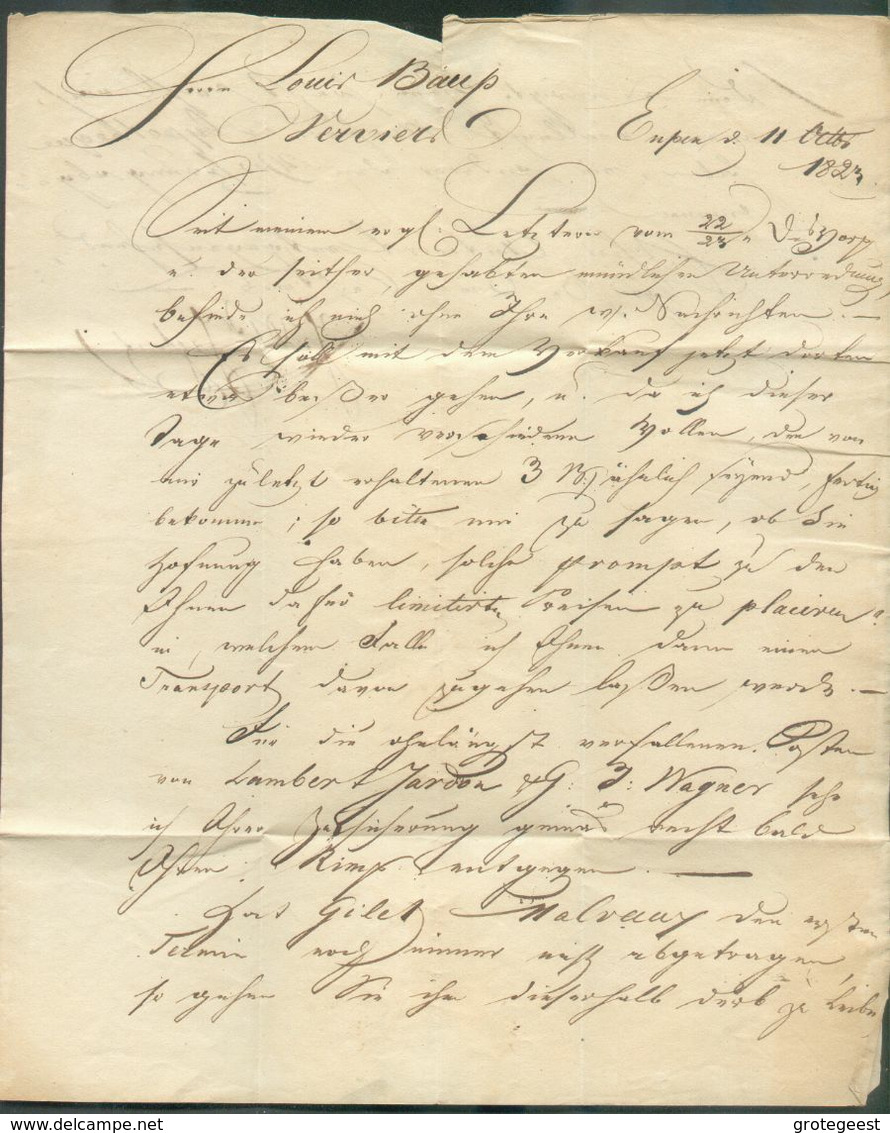 Herrn Louis Baup
Verviers
Eupen d. 11 Octb
1827.
Seit meinem ergl. Letzteren vom 22/23n d. vorg
u. der seither gehabten mündlichen Unterredung,
befinde ich mich ohne Ihre w. Nachrichten. —
Es soll mit dem Verkauf jetzt dorten
etwas beßer gehen, u. da ich dieser
Tage wieder verschiedene Wollen, den von
mir zuletzt erhaltenen 3 ähnlich seyend, fertig
bekomme; so bitte mir zu sagen, ob Sie
Hofnung haben, solche prompt zu den
Ihnen dafür limitirten Preisen zu placiren?
in welchem Falle ich Ihnen dann einen
Transport davon zugehen laßen werde. —
Für die ohnlängst verfallenen Posten
von Lambert Jardon & G: J: Wagner sehe
ich Ihrer Zusicherung gemäs recht bald
Ihren Rimß. entgegen. —
Hat Gilet Malvaux den ersten
Termin noch immer nicht abgetragen,
so gehen Sie ihm dieserhalb derb zu Leibe
delcampe.net
grotegeest